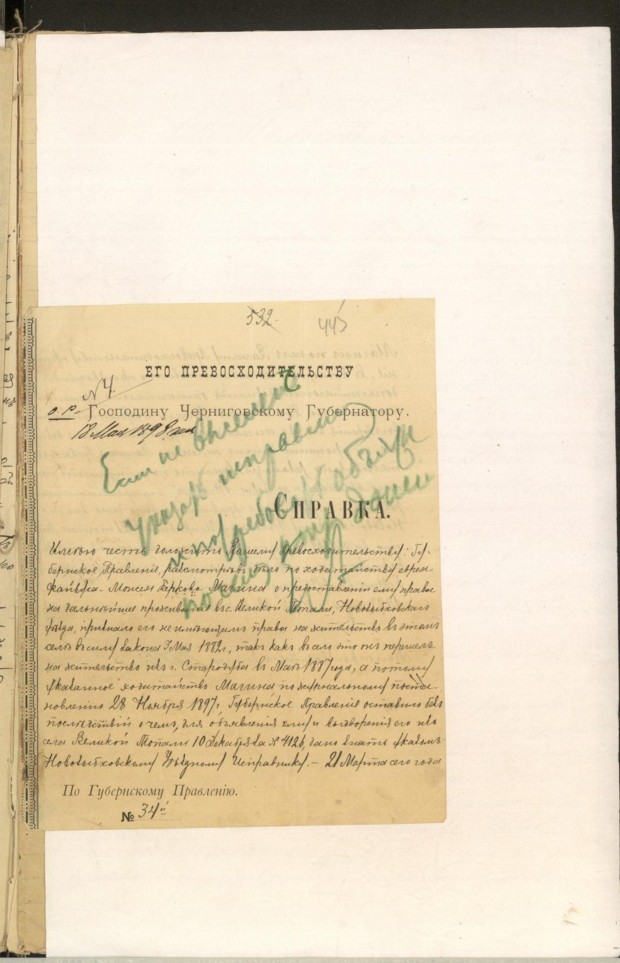 532
443
ЕГО ПРЕВОСХОДИТЕЛЬСТВУ
№ 4
Господину Черниговскому Губернатору.
18 Мая 1898 года
Если не выселены
указать исправнику
и потребовать объясн
СПРАВКА.
Имею честь доложить Вашему Превосходительству: Гу-
бернское Правленіе, разсмотрѣвъ дѣло по ходатайству еврея
Мовши Беркова Магина о предоставленіи ему права
на дальнѣйшее проживаніе въ с. Великой Топали, Новозыбковскаго
уѣзда, признало его не имѣющимъ права на жительство въ этомъ
селѣ въ силу закона 3 Мая 1882 г., такъ какъ въ село это онъ перешелъ
на жительство изъ г. Стародуба въ Маѣ 1887 года, а потому
указанное ходатайство Магина по журнальному поста-
новленію 28 Ноября 1897 г. Губернское Правленіе оставило безъ
послѣдствій о чемъ, для объявленія ему и выдворенія его изъ
села Великой Топали 10 Декабря за № 4126, дано знать указомъ
Новозыбковскому Уѣздному Исправнику. – 21 Марта сего года
По Губернскому Правленію.
№ 34